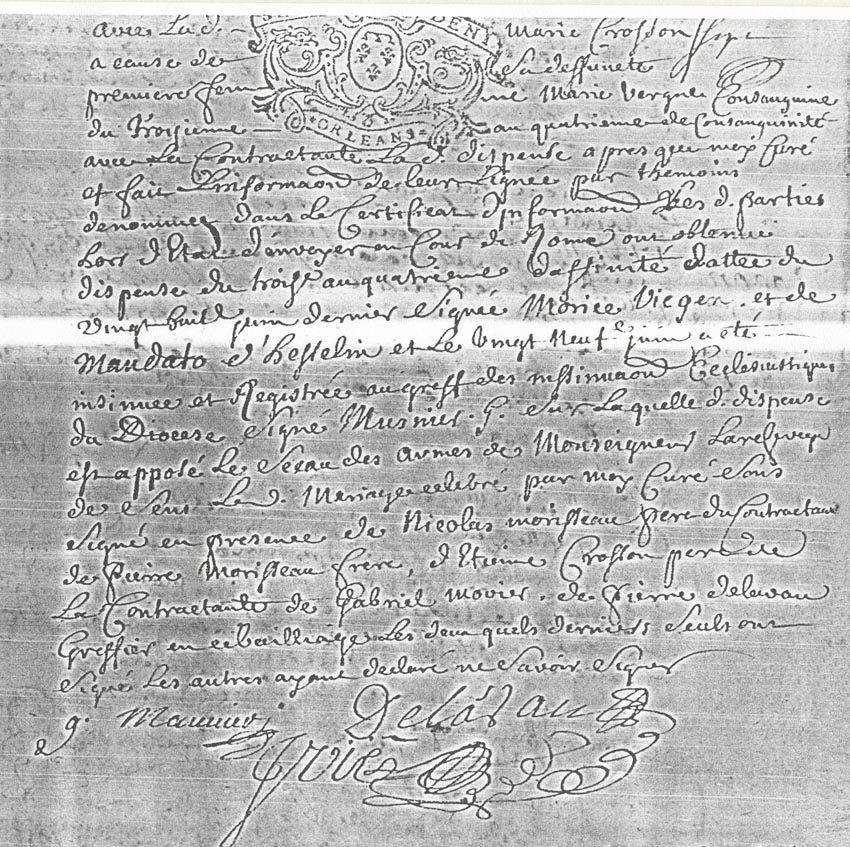 avec La d.— Marie Crosson
a cause de — sa deffuncte
premiere fem — me Marie Vergne Consanguine
DEN
ORLEANS
du Troisieme — au quatrieme de Consanguinité
avec La Contractante La d. dispense apres que moy Curé
et fait L'informaon de leur Lignée par themoins
denommez dans Le Certificat d'Informaon Les d. parties
hors d'Etat d'envoyer en Cour de Rome ont obtenu
dispense du trois.e au quatrieme d'affinité dattée du
vingt huit juin dernier Signée Morice Vieger. et de
Mandato d'hesselin et Le Vingt Neuf.e juin a eté
insinuee et Registrée au greffe des inssinuaon Ecclesiastiques
du Diocese Signé Musnier. G. Sur Laquelle d. dispense
est apposé Le Sceau des armes de Monseigneur Larchevequ
de Sens Le d. Mariage celebré par moy Curé Sous
Signé en presence de Nicolas morisseau pere du Contractant
de Pierre Morisseau frere, d'Etienne Crosson pere de
La Contractante de Gabriel movier. de Pierre delavau
Greffier en ce bailliage Les deux quels derniers Seuls ont
Signé Les autres ayant declaré ne Savoir Signer
g.
Delavau